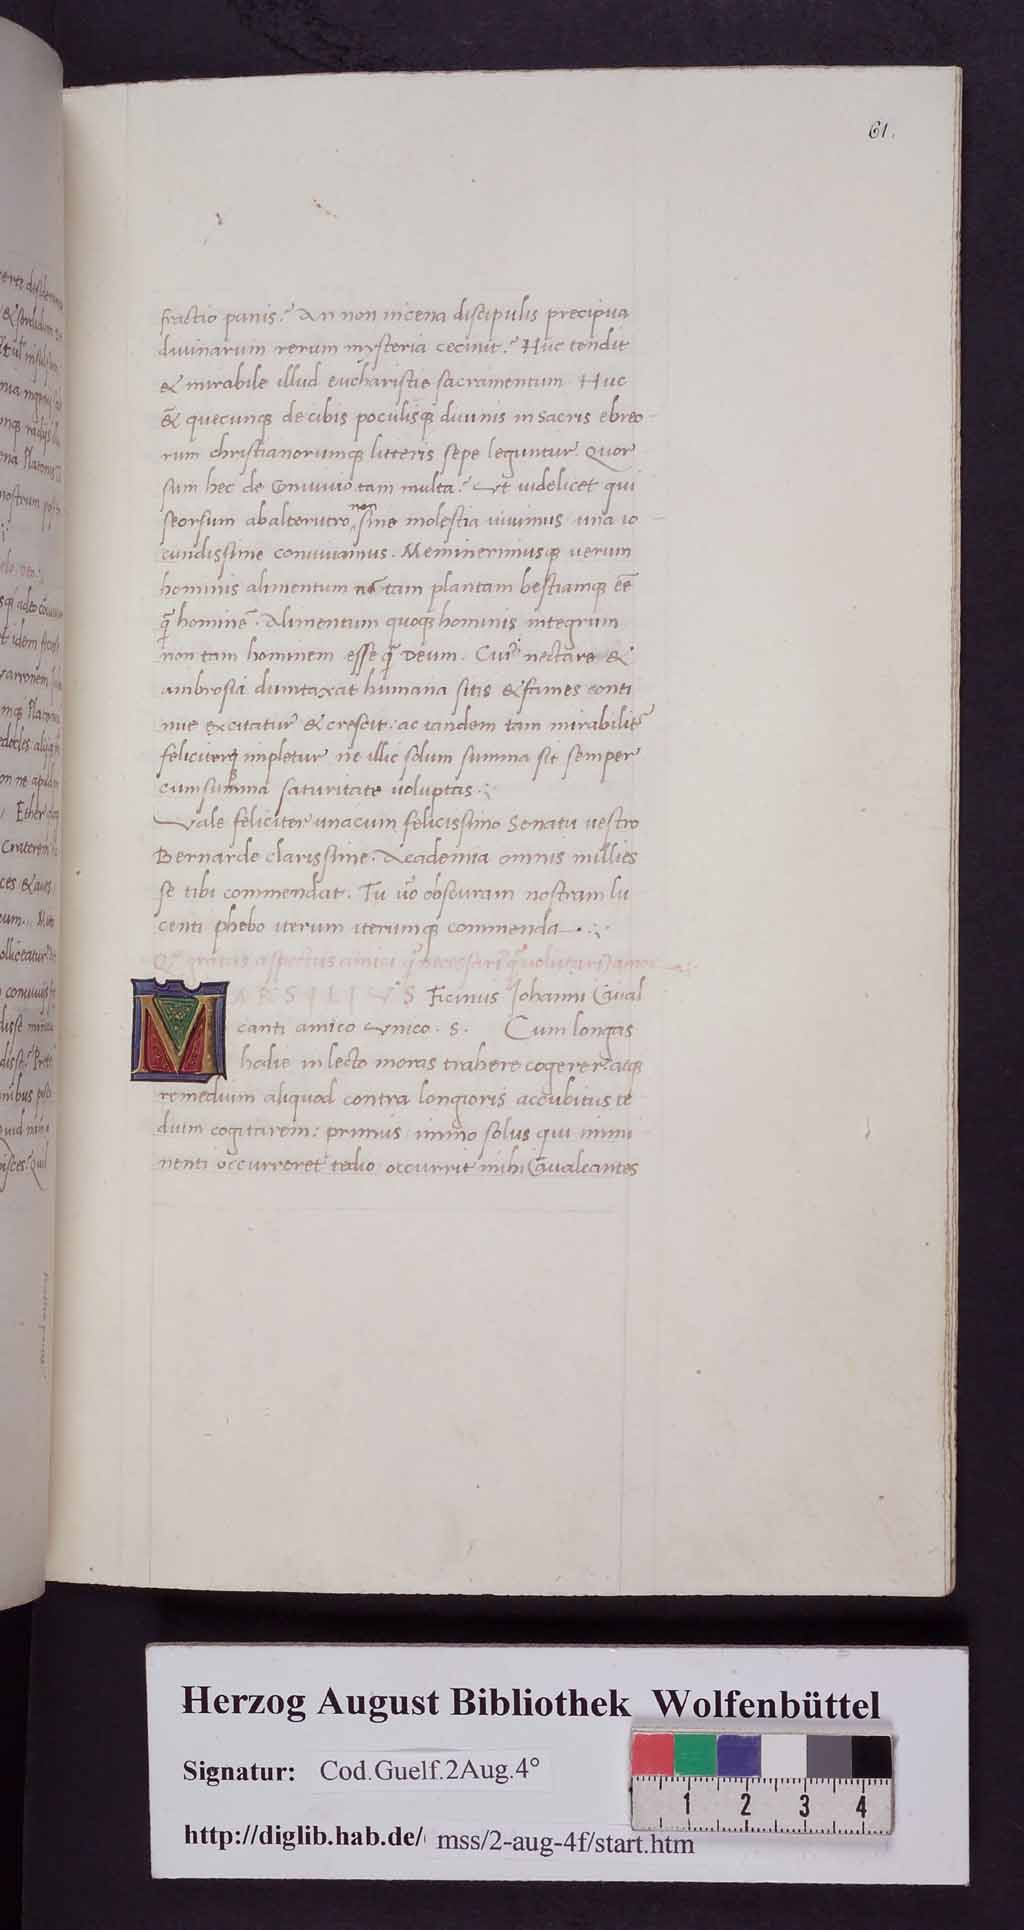 61.
fractio panis? An non in cena discipulis precipua
diuinarum rerum mysteria cecinit? Huc tendit
& mirabile illud eucharistie sacramentum. Huc
& quecunq; de cibis poculisq; diuinis in sacris ebreo-
rum christianorumq; litteris sepe leguntur. Quor
sum hec de Conuiuio tam multa? Vt uidelicet qui
seorsum ab alterutro non sine molestia uiuimus una io-
cundissime conuiuamus. Meminerimusq; uerum
hominis alimentum nõ tam plantam bestiamq; eẽ
q̃ hominẽ. Alimentum quoq; hominis integrum
non tam hominem esse q̃ Deum. Cui' nectare &
ambrosia dumtaxat humana sitis & fames conti
nue excitatur & crescit: ac tandem tam mirabilit̃
feliciterq; impletur ne illic solum summa sit semper
cum summa saturitate uoluptas.
Vale feliciter una cum felicissimo Senatu uestro
Bernarde clarissime. Academia omnis millies
se tibi commendat. Tu uo obscuram nostram lu
centi phebo iterum iterumq; commenda.
gratus aspectus amici q̃ necessari' q̃ uoluntari' amor
MARSILIVS Ficinus Iohanni Caual
canti amico Vnico. S. Cum longas
hodie in lecto moras trahere cogerer: atq;
remedium aliquod contra longioris accubitus te
dium cogitarem: primus immo solus qui immi
nenti occurreret tedio occurrit mihi Caualcantes
Herzog August Bibliothek Wolfenbüttel
Signatur: Cod.Guelf.2Aug.4°
http://diglib.hab.de/ mss/2-aug-4f/start.htm
1 2 3 4